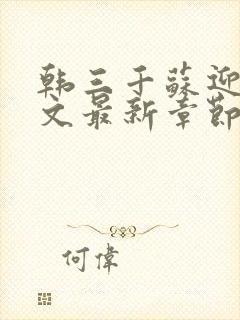 韩三千苏迎
文最新章節
何偉